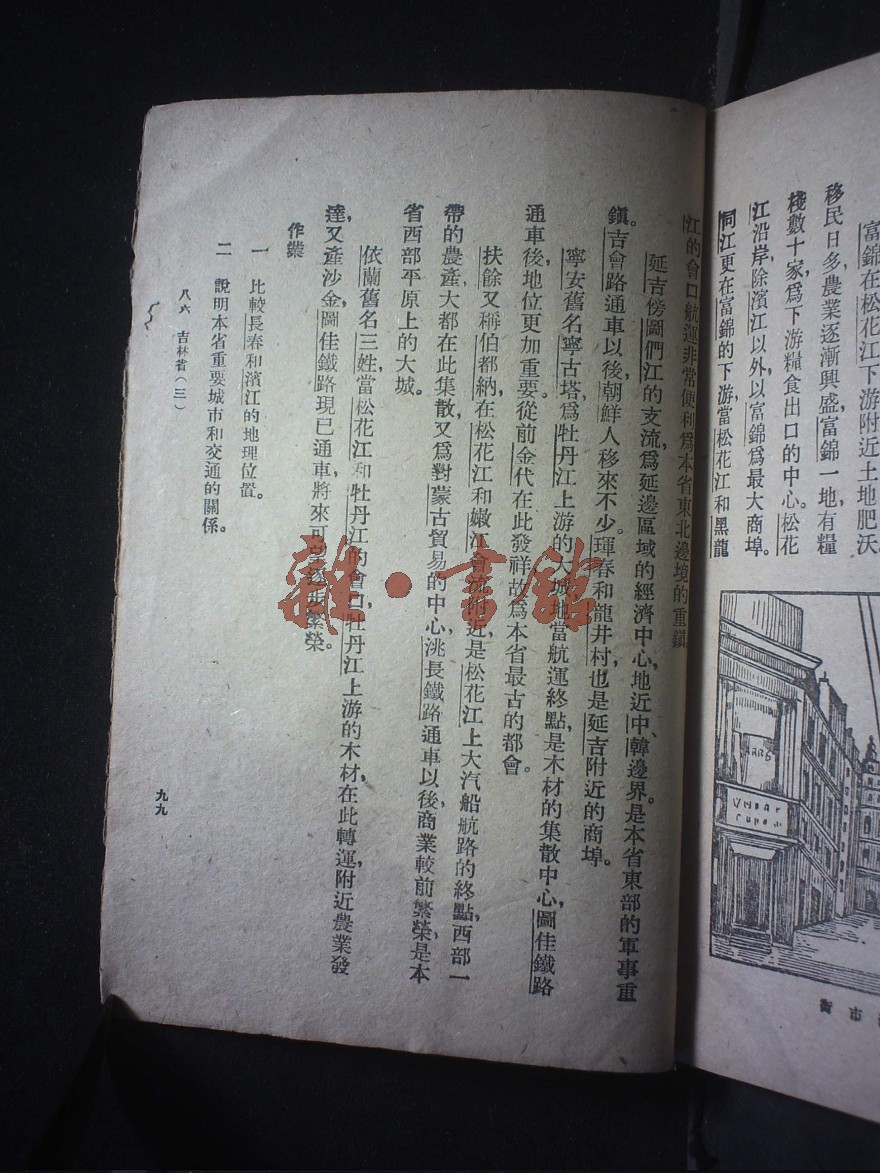 富錦在松花江下游附近土地肥沃，
移民日多，農業逐漸興盛，富錦一地有糧
棧數十家，爲下游糧食出口的中心。松花
江沿岸除濱江以外，以富錦爲最大商埠。
同江更在富錦的下游，當松花江和黑龍
江的會口，航運非常便利，爲本省東北邊境的重鎭。
市街
延吉傍圖們江的支流，爲延邊區域的經濟中心，地近中、韓邊界。是本省東部的軍事重
鎭。吉會路通車以後，朝鮮人移來不少。琿春和龍井村，也是延吉附近的商埠。
寧安舊名寧古塔，爲牡丹江上游的大城，地當航運終點，是木材的集散中心，圖佳鐵路
通車後，地位更加重要。從前金代在此發祥，故爲本省最古的都會。
扶餘又稱伯都納，在松花江和嫩江會流附近，是松花江上大汽船航路的終點，西部一
帶的農產，大都在此集散，又爲對蒙古貿易的中心，洮長鐵路通車以後，商業較前繁榮，是本
省西部平原上的大城。
依蘭舊名三姓，當松花江和牡丹江的會口，牡丹江上游的木材，在此轉運，附近農業發
達，又產沙金，圖佳鐵路現已通車，將來可望逐步繁榮。
作業
一 比較長春和濱江的地理位置。
二 說明本省重要城市和交通的關係。
八六 吉林省(三)
九九
雜·書館